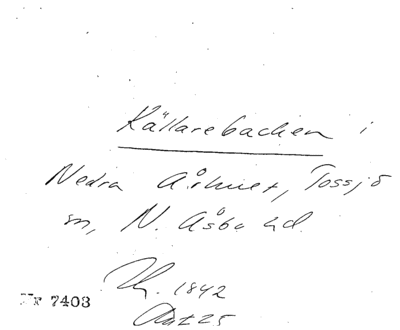 Källarebacken i
Nedra Århuet, Tossjö
sn, N. Åsbo hd.
Th. 1842
Akt 25
Nr 7403